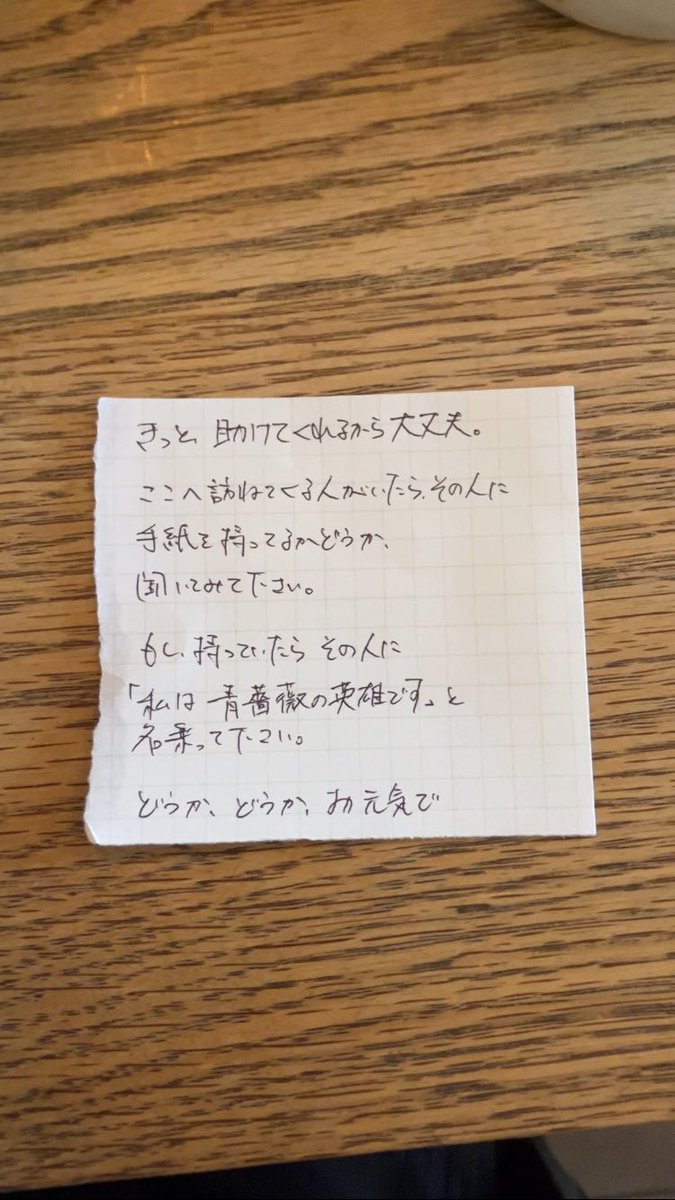 きっと、助けてくれるから大丈夫。
ここへ訪ねてくる人がいたら、その人に
手紙を持ってるかどうか、
聞いてみて下さい。
もし、持っていたら その人に
「私は 青薔薇の英雄です」と
名乗って下さい。
どうか、どうか、お元気で